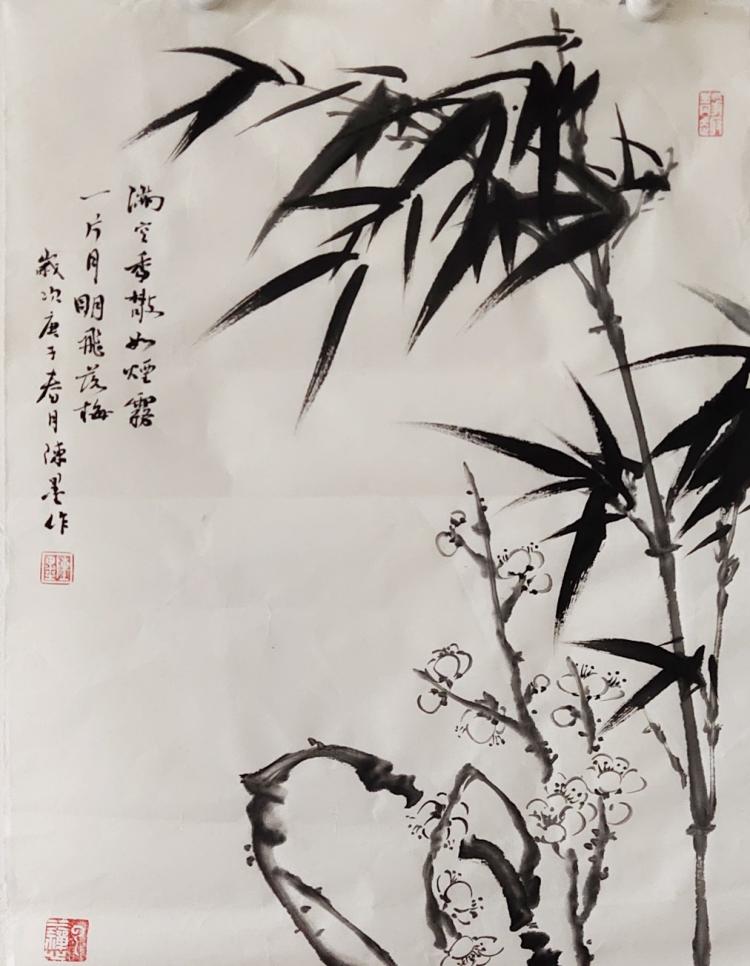 滿空香散如煙霧
一片月明飛落梅
歲次庚子春月陳墨作